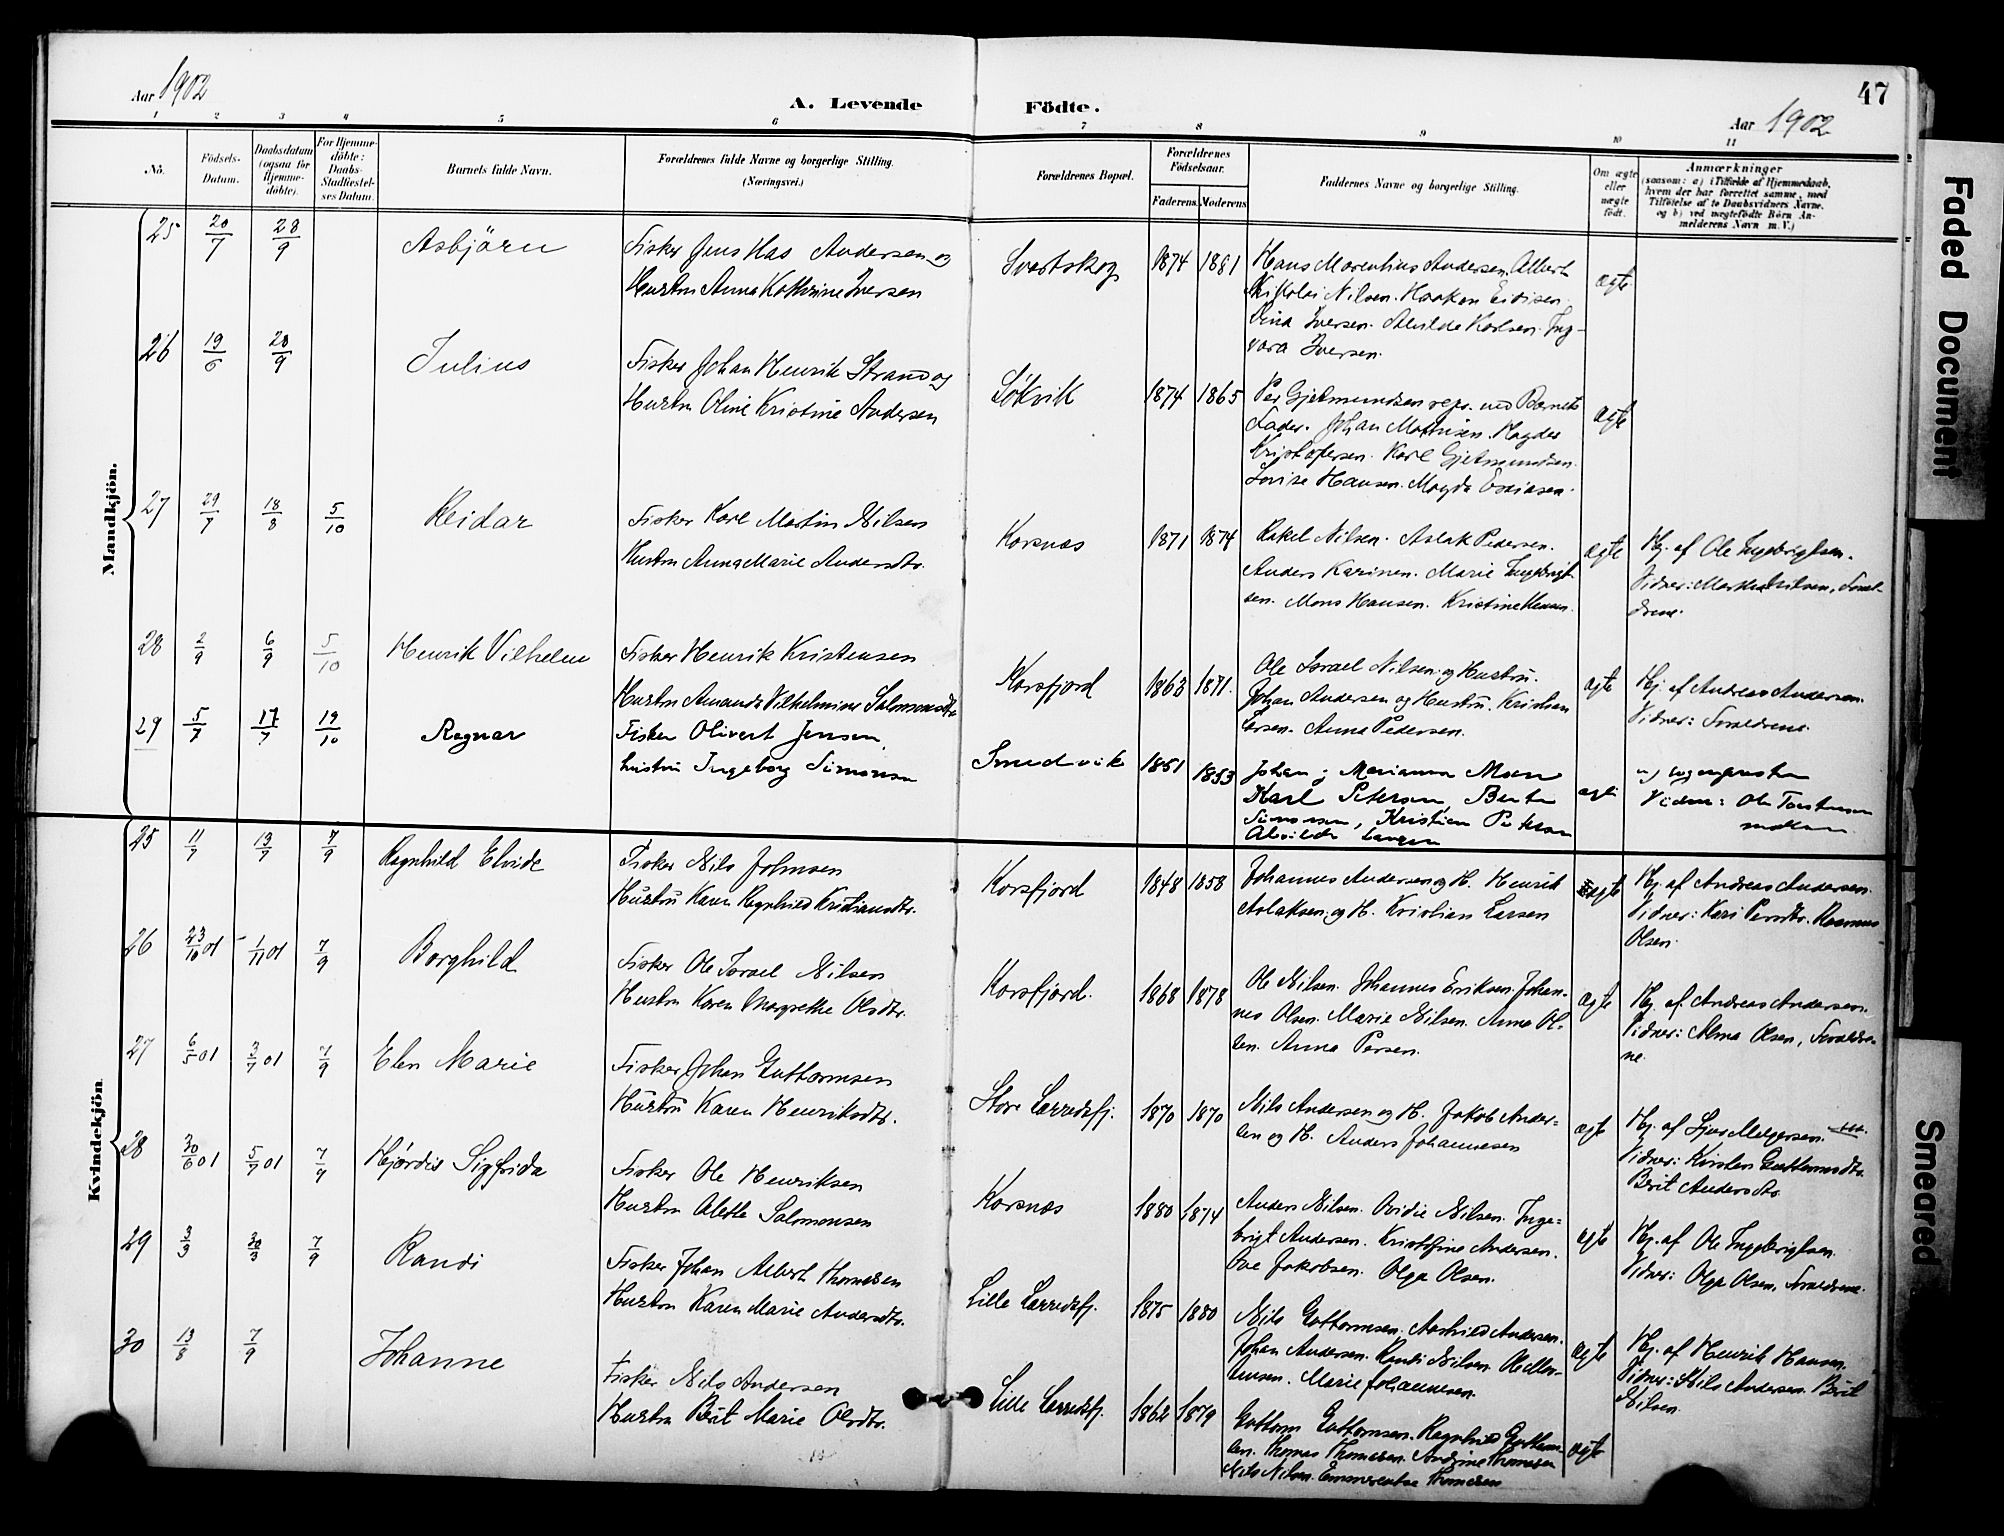 Aar 1902
A. Levende Födte.
47
Aar 1902
1 2 3 4 5 6 7 8 9 10 11
No.
Födsels-Datum.
Daabsdatum (ogsaa for Hjemme-döbte).
For Hjemme-döbte: Daabs-Stadfæstel-ses Datum.
Barnets fulde Navn.
Forældrenes fulde Navne og borgerlige Stilling. (Næringsvei.)
Forældrenes Bopæl.
Forældrenes Födselsaar.
Faderens. Moderens.
Faddernes Navne og borgerlige Stilling.
Om ægte eller uægte födt.
Anmærkninger
(saasom: a) i Tilfælde af Hjemmedaab, hvem der har forrettet samme, med Tilföielse af to Daabsvidners Navne, og b) ved uægtefödte Börn An-melderens Navn m. V.)
Mandkjön.
25 20/7 28/9 Asbjörn
Fisker Jens Has Andersen og
Hustru Anna Kathrine Iversen
Svartskog 1874 1881
Hans Marentius Andersen. Albert
Nikolai Nilsen. Haakon Eidisen.
Dina Iversen. Alvilde Karlsen. Ing-
vara Iversen.
ægte
26 19/6 28/9 Julius
Fisker Johan Henrik Strand og
Hustru Oline Kristine Andersen
Løkvik 1874 1865
Per Gjetmundsen repr. ved Barnets
Fader. Johan Mathisen. Hagder
Kristofersen. Karl Gjetmundsen.
Lovise Hansen. Magda Esaiasen.
ægte
27 29/7 18/8 5/10 Reidar
Fisker Karl Martin Nilsen
Hustru Anna Marie Andersdtr.
Korsnæs 1871 1874
Rakel Nilsen. Aslak Pedersen.
Anders Karinen. Marie Ingebrigt-
sen. Mons Hansen. Kristine Hansen.
ægte
Hj. af Ole Ingebrigtsen.
Vidner: Marthe Nilsen, Foræl-
drene.
28 2/9 6/9 5/10 Henrik Vilhelm
Fisker Henrik Kristensen
Hustru Amanda Vilhelmine Salomonsdtr
Korsfjord 1863 1871.
Ole Israel Nilsen og Hustru.
Johan Andersen og Hustru. Kristian
Larsen. Anna Pedersen.
ægte
Hj. af Andreas Andersen.
Vidner: Forældrene.
29 5/7 17/7 19/10 Ragnar
Fisker Olivert Jensen,
hustru Ingeborg Simonsen
Smedvik 1851 1853
Johan og Marianna Moen
Karl Petersen, Berte
Simonsen, Kristian Petersen
Alvilde
ægte
Vidner: Ole
Kvindekjön.
25 11/7 13/7 7/9 Ragnhild Elvide
Fisker Nils Johnsen
Hustru Karen Ragnhild Kristiansdtr.
Korsfjord 1848 1858
Johannes Andersen og H. Henrik
Aslaksen og H. Kristian Larsen
ægte
Hj. af Andreas Andersen.
Vidner: Kari Persdtr. Rasmus
Olsen.
26 23/10 01 1/11 01 7/9 Borghild
Fisker Ole Israel Nilsen
Hustru Karen Margrethe Olsdtr.
Korsfjord. 1868 1878
Ole Nilsen. Johannes Eriksen. Johan-
nes Olsen. Marie Nilsen. Anna Ol-
sen. Anna Persen.
ægte
Hj. af. Andreas Andersen.
Vidner: Alma Olsen, Forældre-
ne.
27 6/5 01 3/7 01 7/9 Elen Marie
Fisker Johan Guttormsen
Hustru Karen Henriksdtr.
Store Lærredsfj. 1870 1870
Nils Andersen og H. Jakob Ander-
sen og H. Anders Johannesen
ægte
Hj. af Sjur Melgersen.
Vidner: Kirsten Guttormsdtr.
Berit Andersdtr.
28 30/6 01 5/7 01 7/9 Hjørdis Sigfrida
Fisker Ole Henriksen
Hustru Alette Salomonsen
Korsnæs 1880 1874
Anders Nilsen. Ovidie Nilsen. Inge-
brigt Andersen. Kristofine Andersen.
Ove Jakobsen. Olga Olsen.
ægte
Hj. af Ole Ingebrigtsen.
Vidner: Olga Olsen, Forældrene.
29 3/3 30/3 7/9 Randi
Fisker Johan Albert Thomesen
Hustru Karen Marie Andersdtr.
Lille Lærredsfj. 1875 1880
Nils Guttormsen. Aashild Andersen.
Johan Andersen. Randi Nilsen. Ole Mor-
tensen. Marie Johannesen.
ægte
Hj. af Henrik Hansen.
Vidner: Nils Andersen. Berit
Nilsen.
30 13/8 7/9 Johanne
Fisker Nils Andersen
Hustru Berit Marie Olsdtr.
Lille Lærredsfj. 1862 1879
Guttorm Guttormsen. Ragnhild Guttorm-
sen. Thomas Thomesen. Andrine Thomesen
Nils Nilsen. Emmerentse Thomesen
ægte
Faded Document
Smeared